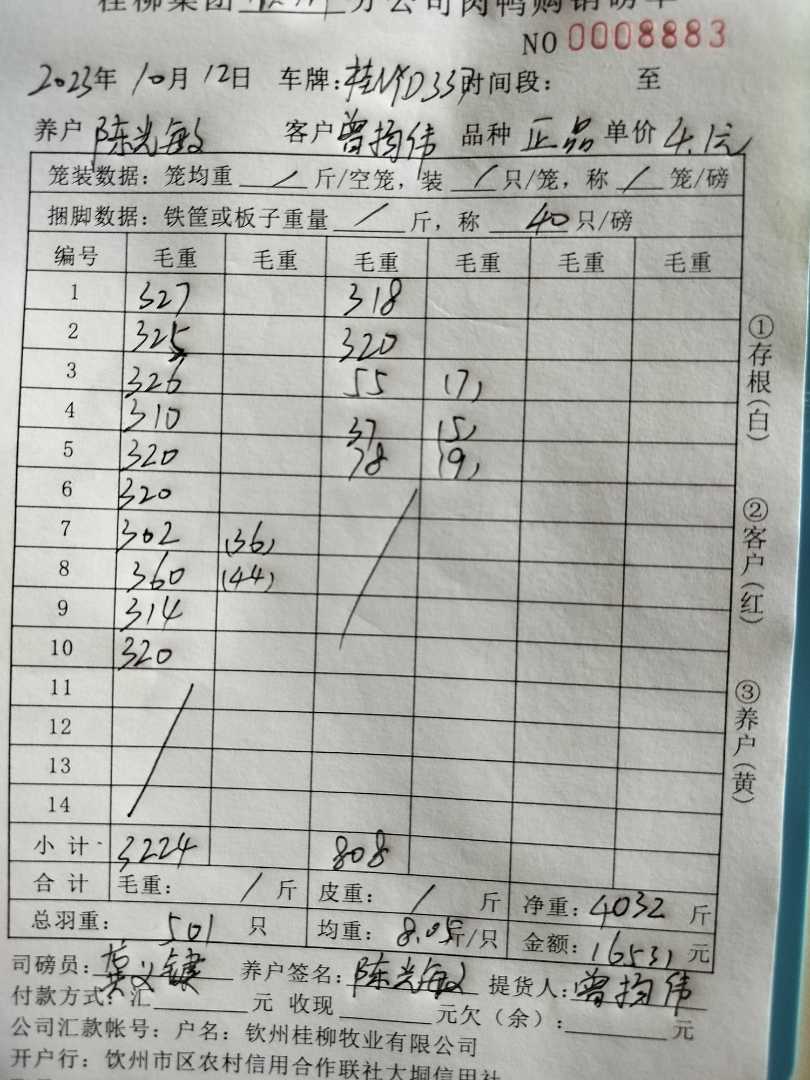 桂柳集团 钦州 分公司肉鸭购销磅单
NO 0008883
2023年 10月 12日 车牌: 时间段: 至
养户 陈光敏 客户 曾均伟 品种 正品 单价 4.1元
笼装数据: 笼均重 / 斤/空笼, 装 / 只/笼, 称 / 笼/磅
捆脚数据: 铁筐或板子重量 / 斤, 称 40 只/磅
编号 毛重 毛重 毛重 毛重 毛重 毛重
1 327 318
2 325 320
3 326 55 (7)
4 310 37 (5)
5 320 78 (9)
6 320
7 302 (36)
8 360 (44)
9 314
10 320
11
12
13
14
小 计 3224 808
合 计 毛重: / 斤 皮重: / 斤 净重: 4032 斤
总羽重: 501 只 均重: 8.05斤/只 金额: 16531 元
司磅员: 养户签名: 陈光敏 提货人: 曾均伟
付款方式: 汇 元 收现 元欠(余): 元
公司汇款帐号: 户名: 钦州桂柳牧业有限公司
开户行: 钦州市区农村信用合作联社大垌信用社
①存根(白)
②客户(红)
③养户(黄)